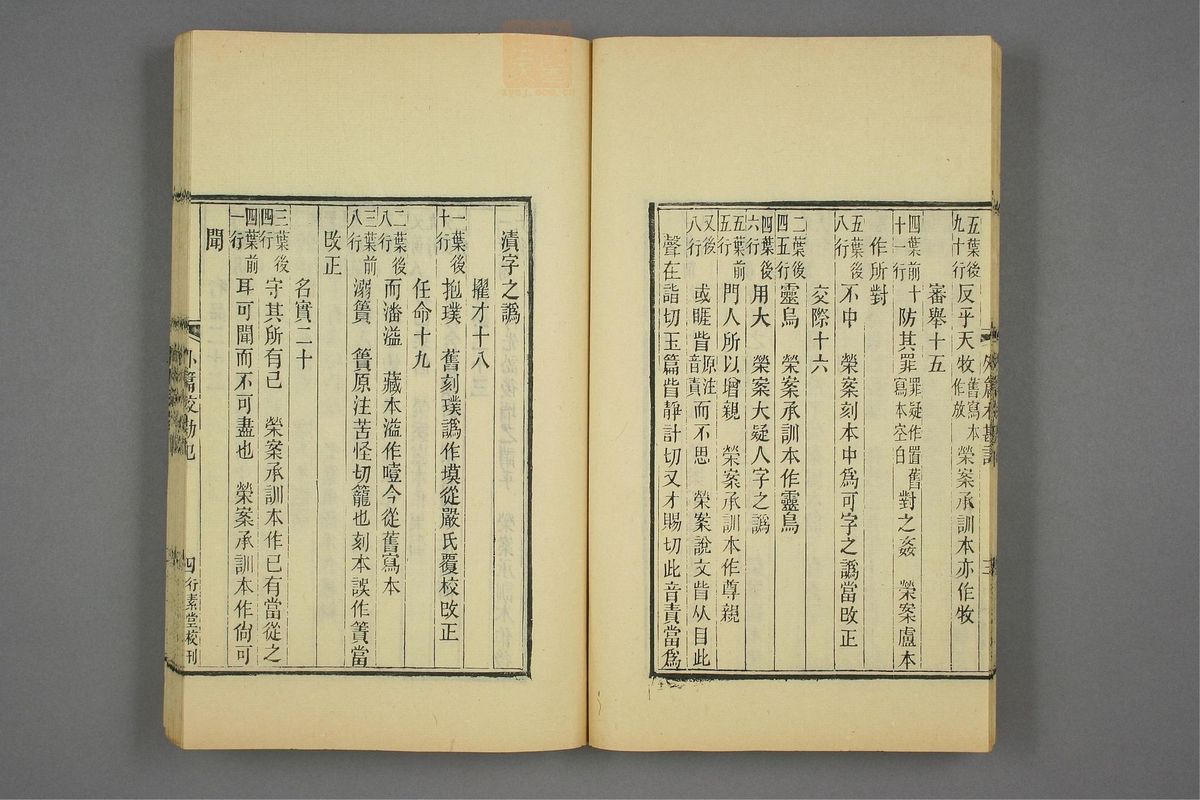 五葉後九十行 反乎天牧 舊寫本作放 榮案承訓本亦作牧
審舉十五
四葉前十一行 十防其罪 罪疑作置舊寫本空白 對之姦 榮案盧本
作所對
五葉後八行 不中 榮案刻本中爲可字之譌當改正
交際十六
二葉後四五行 靈鳥 榮案承訓本作靈烏
四葉後六行 用大 榮案大疑人字之譌
五葉前五行 門人所以增親 榮案承訓本作尊親
又後八行 或睚眥 原注音責 而不思 榮案說文眥从目此
聲在詣切玉篇眥靜計切又才賜切此音責當爲
漬字之譌
擢才十八
一葉後十行 抱璞 舊刻璞譌作墣從嚴氏覆校改正
任命十九
二葉後八行 而潘溢 藏本溢作噎今從舊寫本
三葉前八行 溺簣 簣原注苦怪切籠也刻本誤作簀當
改正
名實二十
三葉後四行 守其所有已 榮案承訓本作已有當從之
四葉前一行 耳可聞而不可盡也 榮案承訓本作尙可
聞
外篇校勘記 四 行素堂校刊